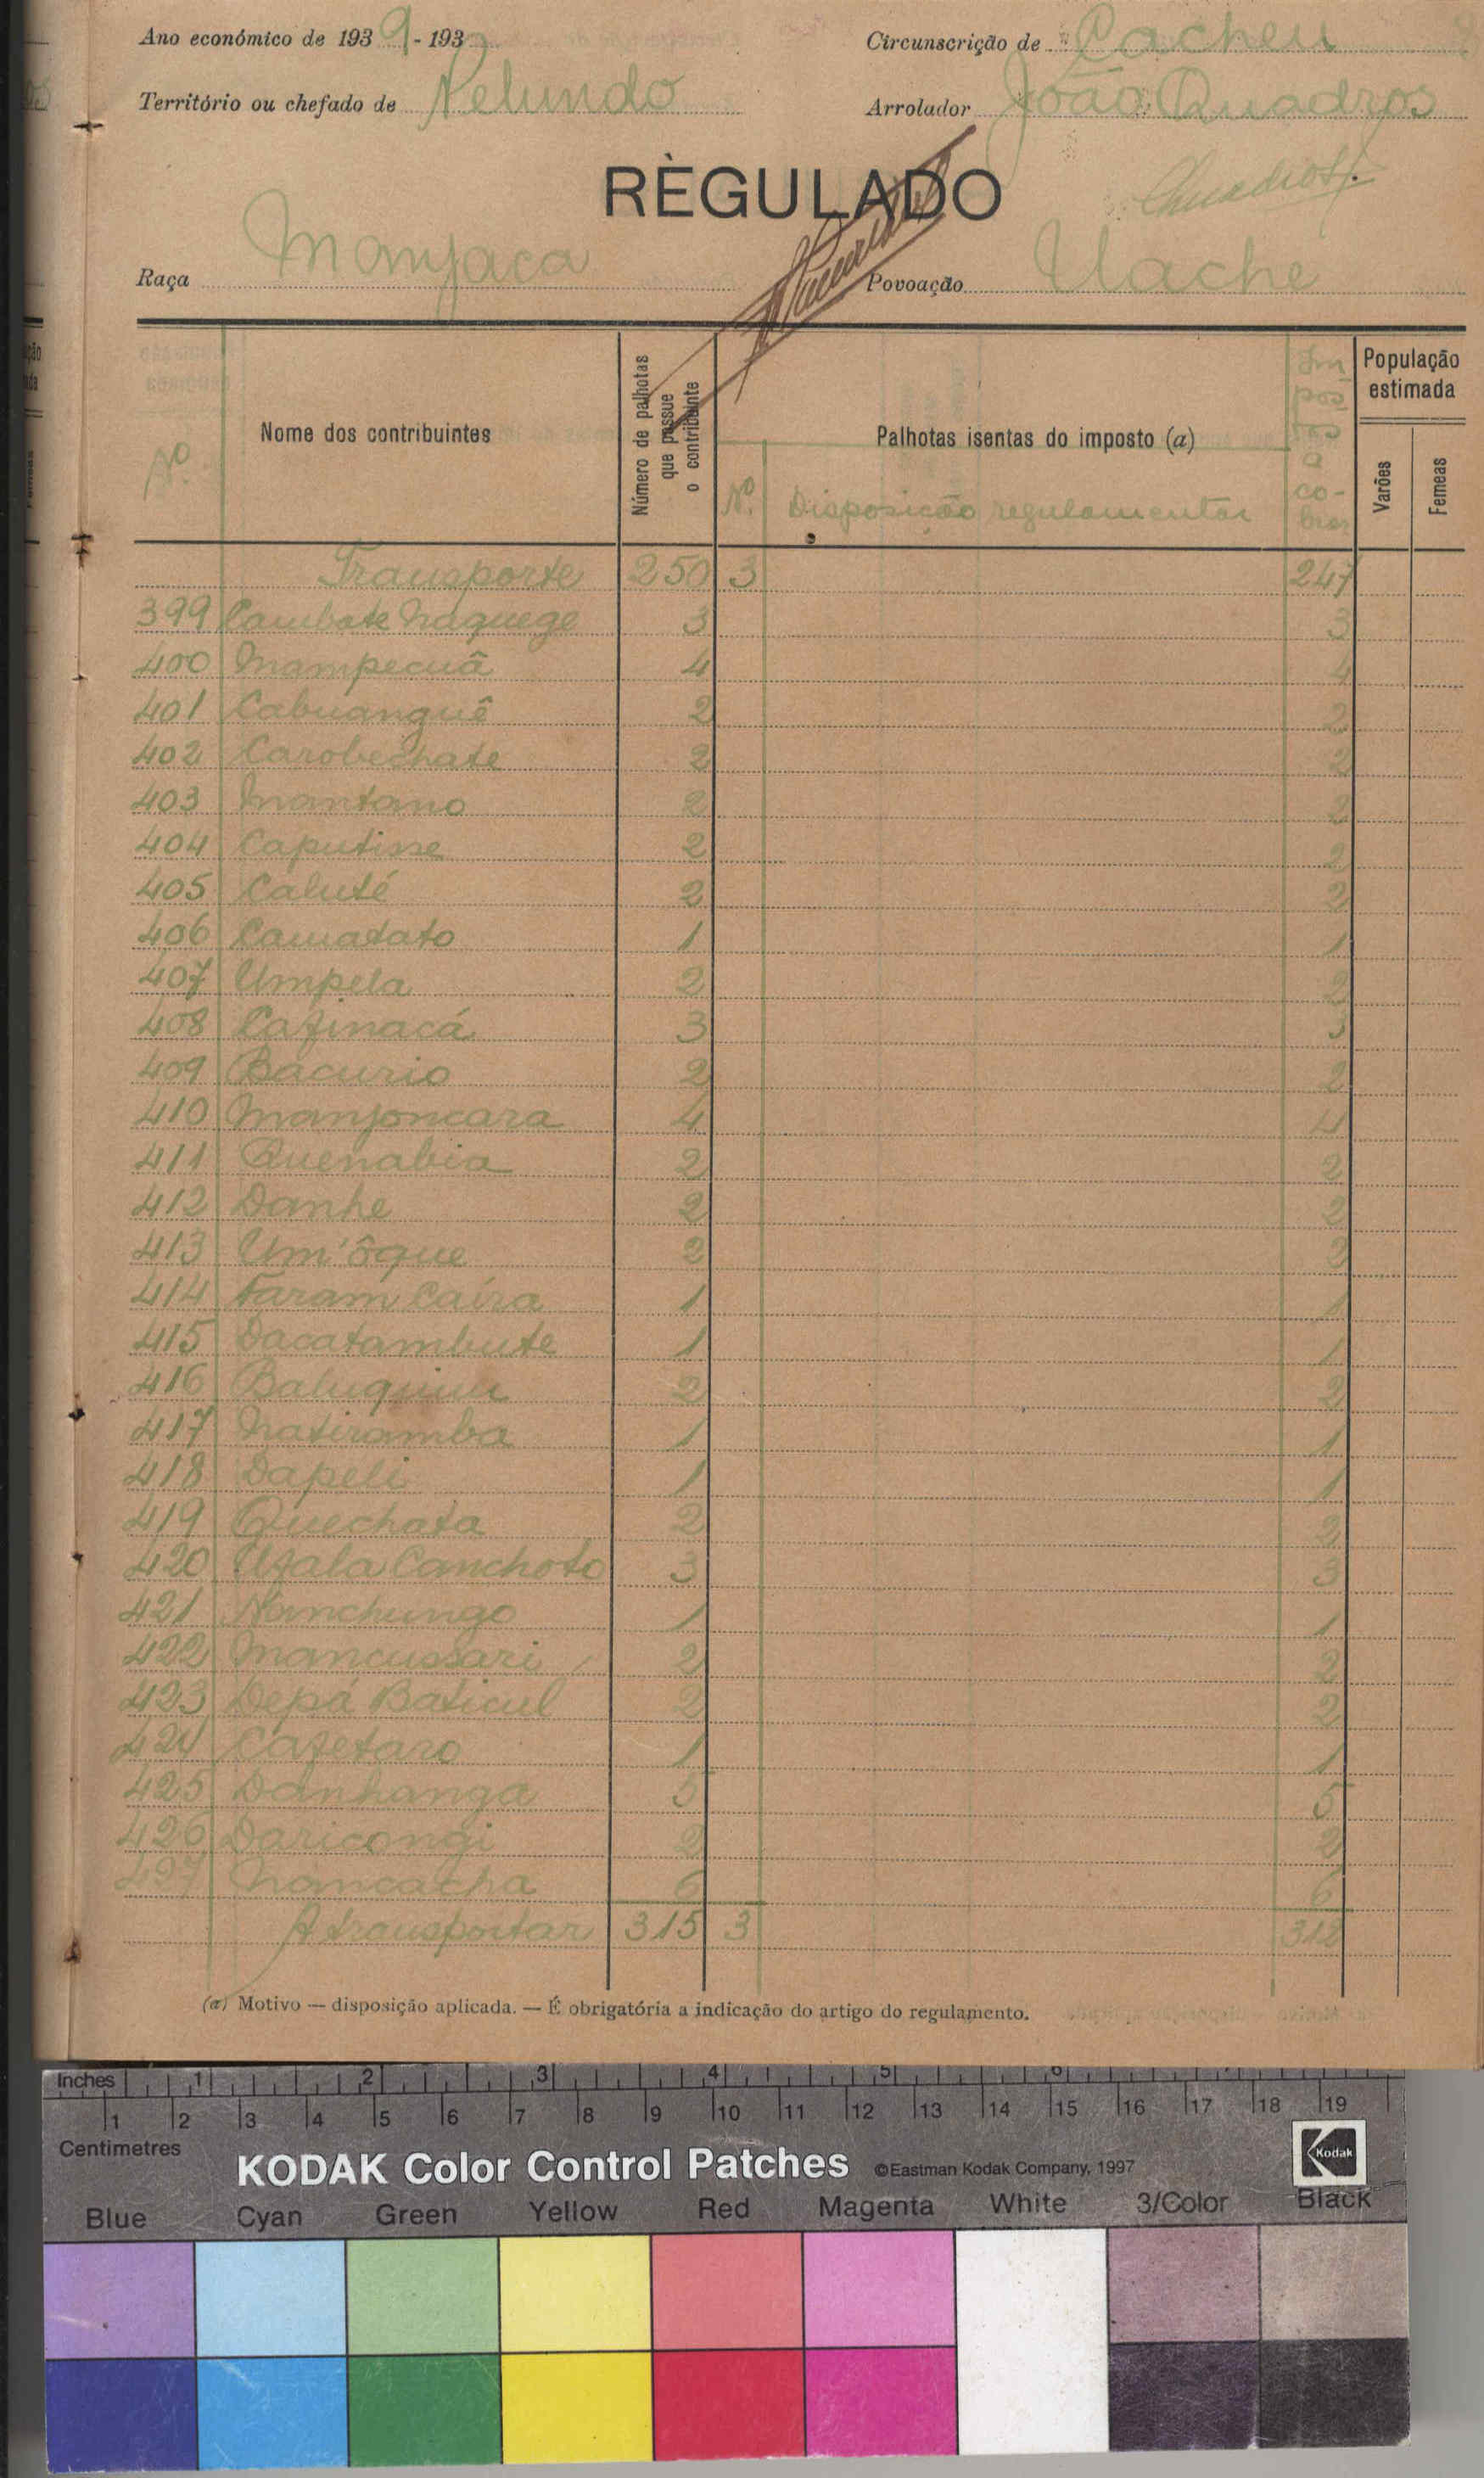 Ano económico de 1939-193
Circunscrição de Cacheu
Território ou chefado de Pelundo
Arrolador João Quadros
RÈGULADO
Quadros
Raça Manjaca
Povoação Uache
Nº
Nome dos contribuintes
Número de palhotas que possue o contribuinte
Palhotas isentas do imposto (a)
Nº. Disposição regulamentar
Impostos a cobrar
População estimada
Varões
Femeas
Transporte 250 3 247
399 Cambate Naquege 3 3
400 Mampecuâ 4 4
401 Cabuanguê 2 2
402 Carobechate 2 2
403 Mantano 2 2
404 Caputisse 2 2
405 Caluté 2 2
406 Camatato 1 1
407 Umpela 2 2
408 Cafinacá 3 3
409 Bacurio 2 2
410 Manjoncara 4 4
411 Quenabia 2 2
412 Danhe 2 2
413 Um'ôque 2 2
414 Faram Caíra 1 1
415 Dacatambute 1 1
416 Baluquim 2 2
417 Natiramba 1 1
418 Dapeli 1 1
419 Quechata 2 2
420 Ufala Canchoto 3 3
421 Nanchungo 1 1
422 Mancussari 2 2
423 Depá Baticul 2 2
424 Cafetaro 1 1
425 Danhanga 5 5
426 Daricongi 2 2
427 Nancacha 6 6
A transportar 315 3 312
(a) Motivo — disposição aplicada. — É obrigatória a indicação do artigo do regulamento.
Inches 1 2 3 4 5 6 7
1 2 3 4 5 6 7 8 9 10 11 12 13 14 15 16 17 18 19
Centimetres
KODAK Color Control Patches ©Eastman Kodak Company, 1997 Kodak
Blue Cyan Green Yellow Red Magenta White 3/Color Black